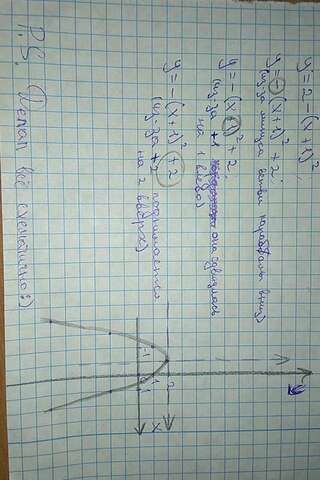 y = 2 - (x+1)²;
y = -(x+1)² + 2;
(из-за минуса ветви параболы вниз)
y = -(x+1)² + 2;
(из-за +1 она сдвинулась
на 1 влево)
y = -(x+1)² + 2
(из-за +2 поднимается
на 2 вверх)
y
2
1
-1
0
1
x
P.S. Делал всё схематично:)